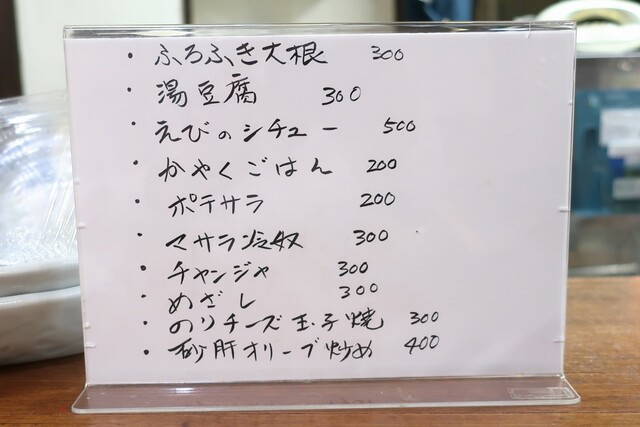 ・ふろふき大根 300
・湯豆腐 300
・えびのシチュー 500
・かやくごはん 200
・ポテサラ 200
・マサラ冷奴 300
・チャンジャ 300
・めざし 300
・のりチーズ玉子焼 300
・砂肝オリーブ炒め 400